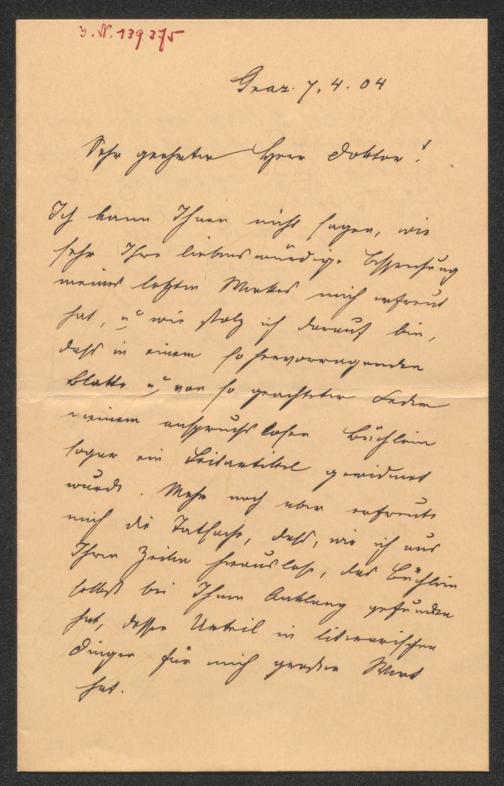 J. N. 139375
Graz. 7. 4. 04
Sehr geehrter Herr Doktor!
Ich kann Ihnen nicht sagen, wie
sehr Ihre liebenswürdige Besprechung
meines letzten Werkes mich erfreut
hat, u. wie stolz ich darauf bin,
dass in einem so hervorragenden
Blatte u. von so geachteter Feder
meinem anspruchslosen Büchlein
sogar ein Leitartikel gewidmet
wurde. Mehr noch aber erfreute
mich die Tatsache, dass, wie ich aus
Ihren Zeilen herauslese, das Büchlein
selbst bei Ihnen Anklang gefunden
hat, dessen Urteil in literarischen
Dingen für mich großen Wert
hat.